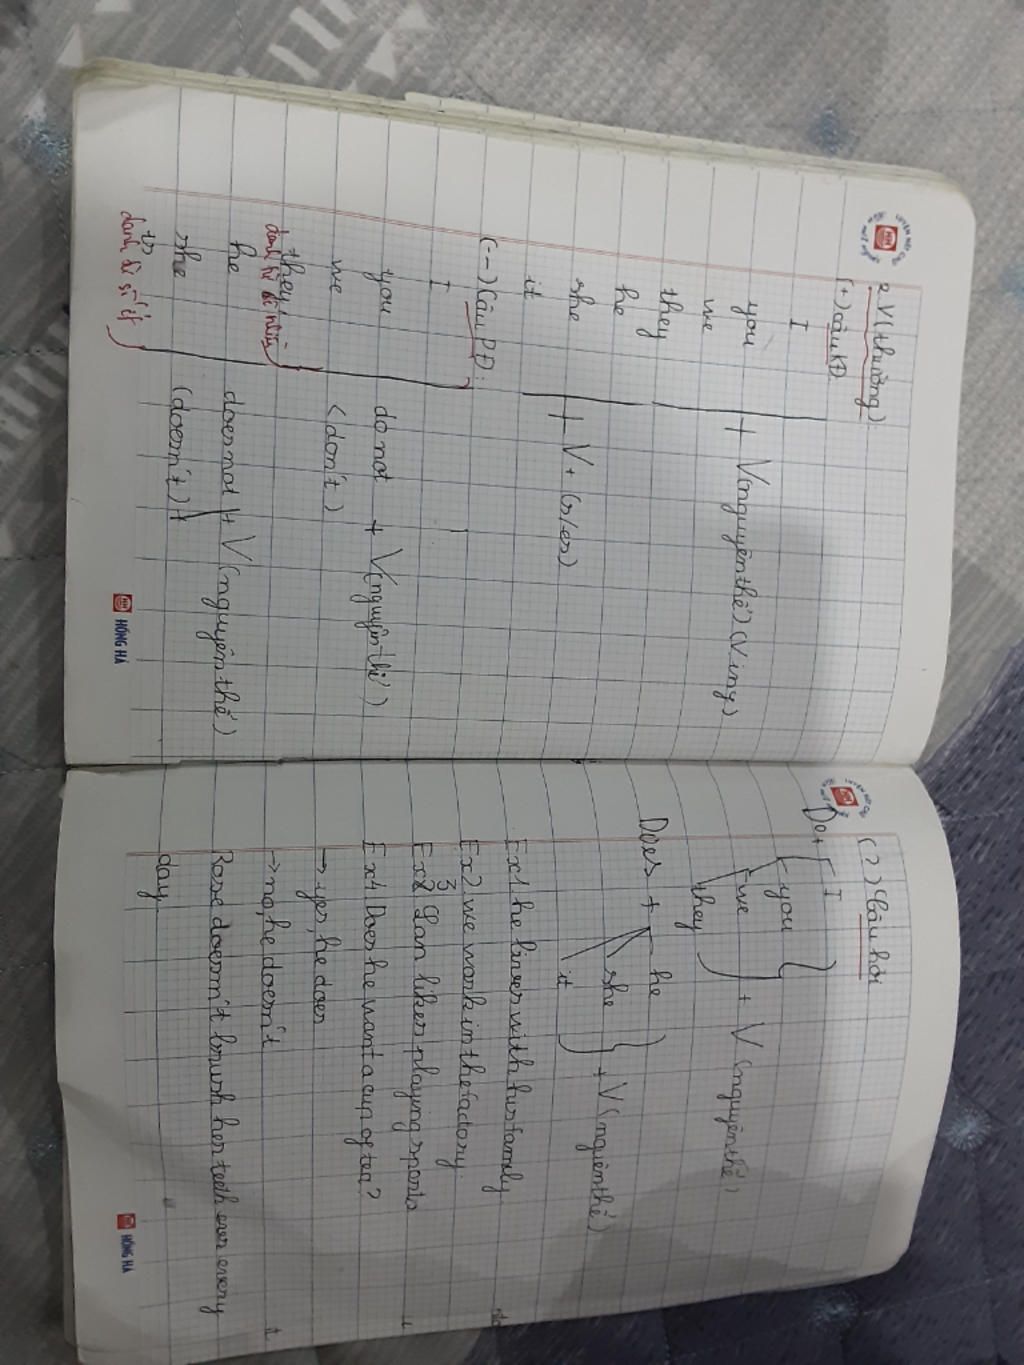 2. V(thường):
(+) Câu KĐ
I
you
we
they
+ V(nguyên thể) (V ing)
he
she
it
+ V + (s/es)
(-) Câu PĐ:
I
you
we
they
danh từ số nhiều
do not + V(nguyên thể)
(don't)
he
she
it
danh từ số ít
does not + V(nguyên thể)
(doesn't)
HỒNG HÀ
(?) Câu hỏi
Do + I
you
we
they
+ V (nguyên thể)
Does + he
she
it
+ V (nguiên thể)
Ex1 he lives with his family
Ex2 we work in the factory
Ex3 Lan likes playing sports
Ex4 Does he want a cup of tea?
→ yes, he does
→ no, he doesn't
Rose doesn't brush her teeth ever every
day
HỒNG HÀ